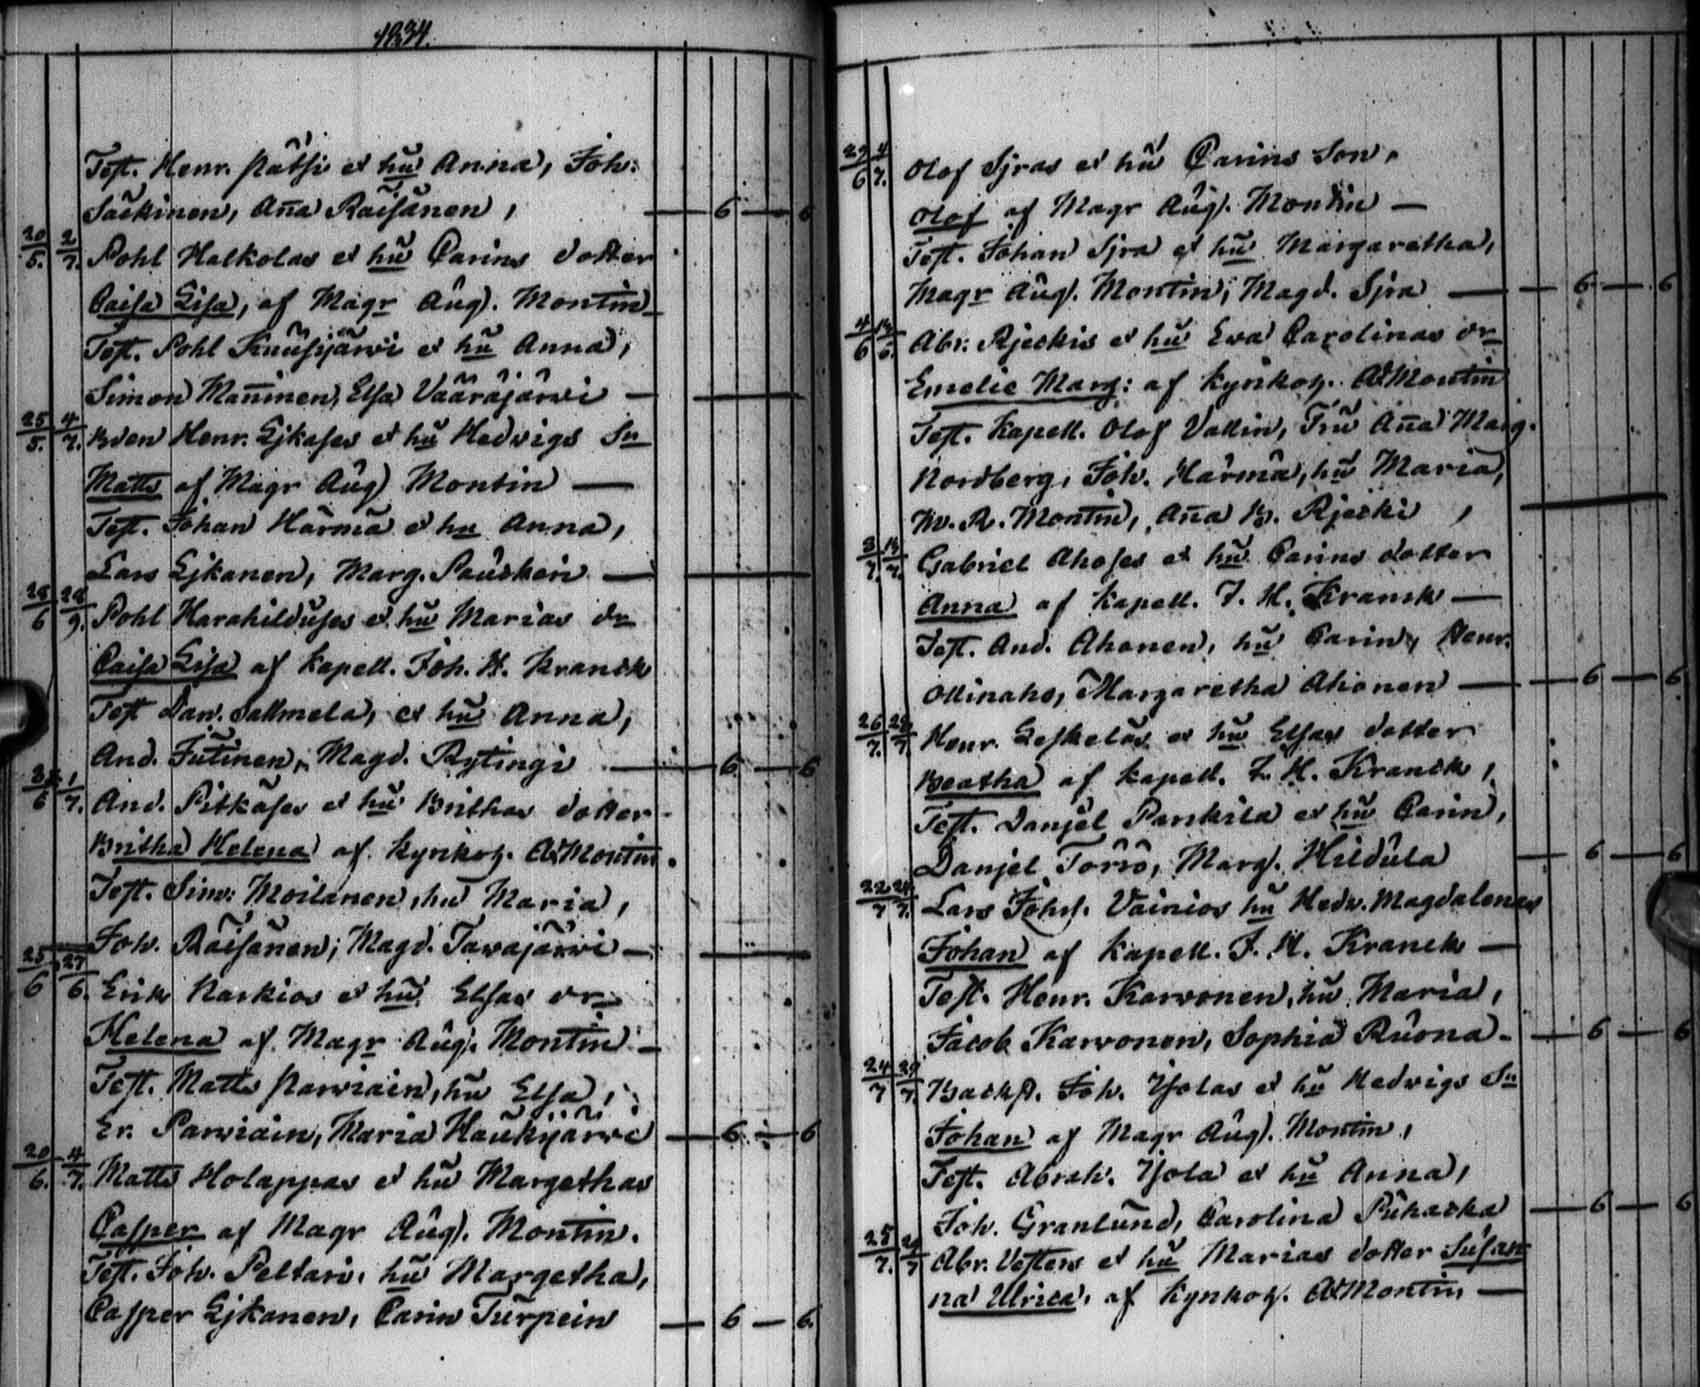 1834.
Test. Henr. Pätsi et hū Anna, Joh:
Säckinen, Aña Räisänen, — 6 — 6
20/5. 2/7. Pohl Halkolas et hū Carins dotter
Caisa Lisa, af Magr Aug. Montin
Test. Pohl Kuusijärwi et hū Anna,
Simon Mañinen, Elsa Vaarajärwi —
25/5. 4/7. Bden Henr. Ljkases et hū Hedvigs Sn
Matts af Magr Aug Montin —
Test. Johan Härmä et hu Anna,
Lars Ljkanen, Marg. Pauckein —
28/6 28/9. Pohl Harahilduses et hū Marias dr
Caisa Lisa af Kapell. Joh. H. Kranck
Test Dan. Sallmela, et hū Anna,
And. Jutinen, Magd. Rytingi — 6 — 6
3/6 1/7. And. Pitkäses et hū Brithas dotter
Britha Helena af Kyrkoh. A Montin.
Test. Sim: Moilanen, hu Maria,
Joh. Räisänen, Magd. Tavajärwi —
25/6 27/6. Erik Karkios et hū Elsas dr
Helena af Magr Aug. Montin —
Test. Matts Parviain, hu Elsa,
Er. Parviain, Maria Haukijärwi — 6 — 6
20/6. 4/7. Matts Holappas et hū Margethas
Casper af Magr Aug. Montin.
Test. Joh. Peltari, hū Margetha,
Casper Ljkanen, Carin Turpein — 6 — 6.
29/6 4/7. Olof Sjras et hū Carins Son,
Olof af Magr Aug. Montin —
Test. Johan Sjra et hū Margaretha,
Magr Aug. Montin, Magd. Sjra — 6 — 6
4/6 Abr. Rjeckis et hū Eva Carolinas dr
Emelie Marg: af Kyrkoh. A Montin
Test. Kapell. Olof Vallin, Fru Aña Marg.
Nordberg, Joh. Härmä, hū Maria,
M. R. Montin, Aña B. Rjecki,
3/7. 13/7. Gabriel Ahoses et hū Carins dotter
Anna af Kapell. J. H. Kranck —
Test. And. Ahonen, hū Carin, Henr.
Ollinaho, Margaretha Ahonen — 6 — 6
26/7. Henr. Leskeläs et hū Elsas dotter
Beatha af Kapell. J. H. Kranck,
Test. Danjel Pankila et hū Carin,
Danjel Törrö, Marg. Hildula — 6 — 6
22/7 Lars Johs. Vainios hū Hedv. Magdalenas
Johan af Kapell. J. H. Kranck —
Test. Henr. Karvonen, hū Maria,
Jacob Karvonen, Sophia Ruona — 6 — 6
24/7 29/7. Backst. Joh. Yjolas et hū Hedvigs Sn
Johan af Magr Aug. Montin,
Test. Abrah. Yjola et hū Anna,
Joh. Granlund, Carolina Puhacka — 6 — 6
25/7. Abr. Vesters et hū Marias dotter Susan
na Ulrica, af Kyrkoh. A Montin, —